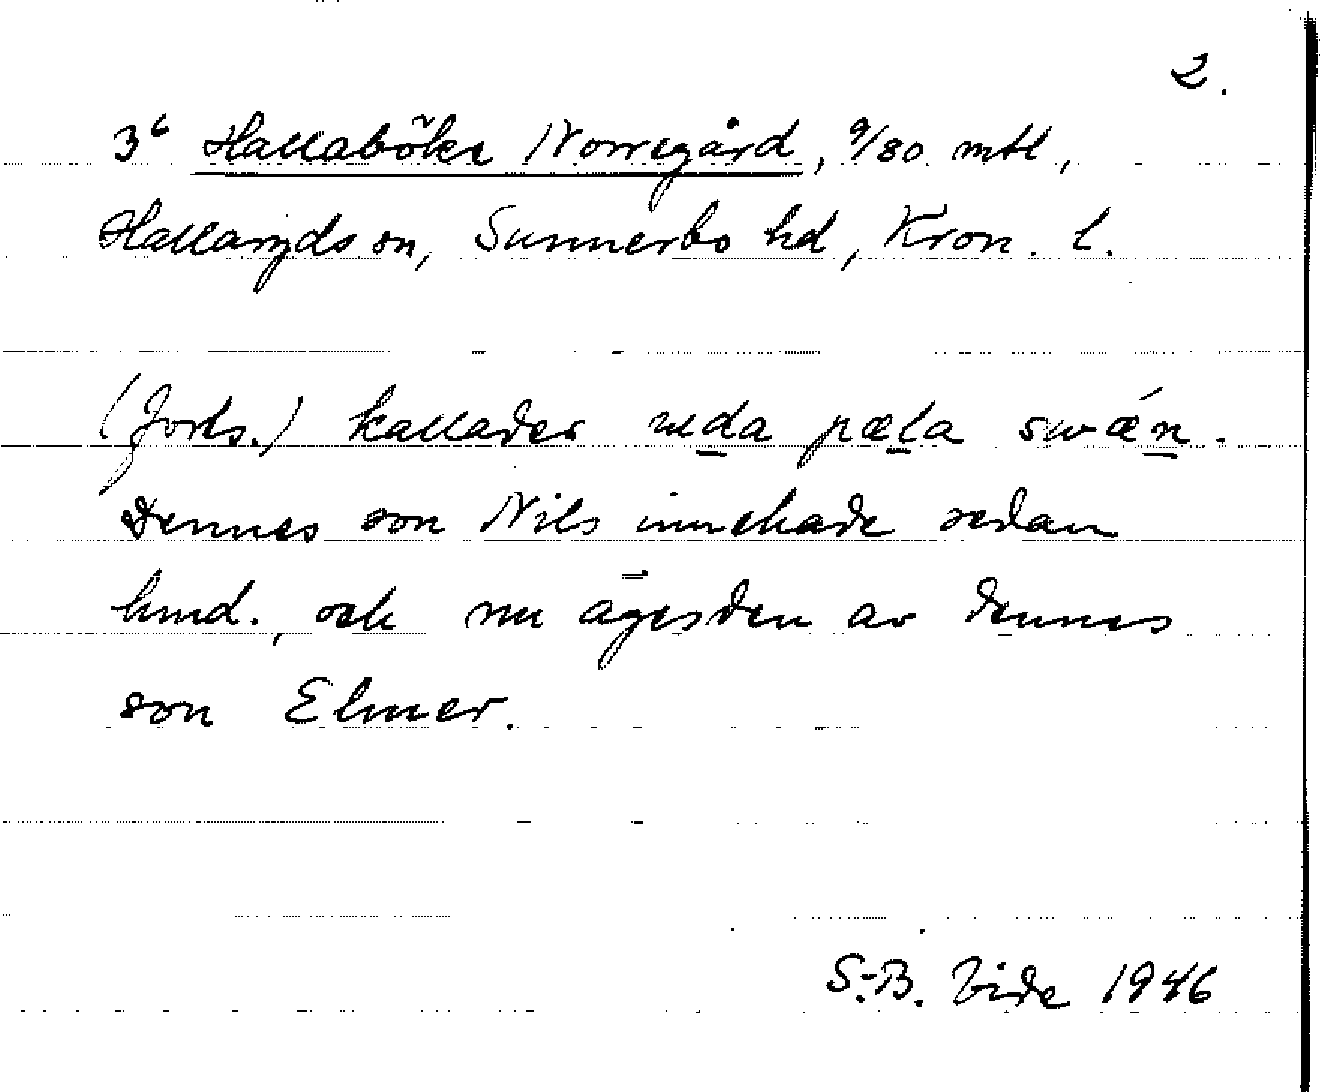 2.
3⁶ Hallaböke Norregård, 9/80 mtl,
Hallaryds sn, Sunnerbo hd, Kron. l.
(Forts.) kallades pæla swǽn.
Dennes son Nils innehade sedan
hmd., och nu äges den av dennes
son Elmer.
S.-B. Vide 1946